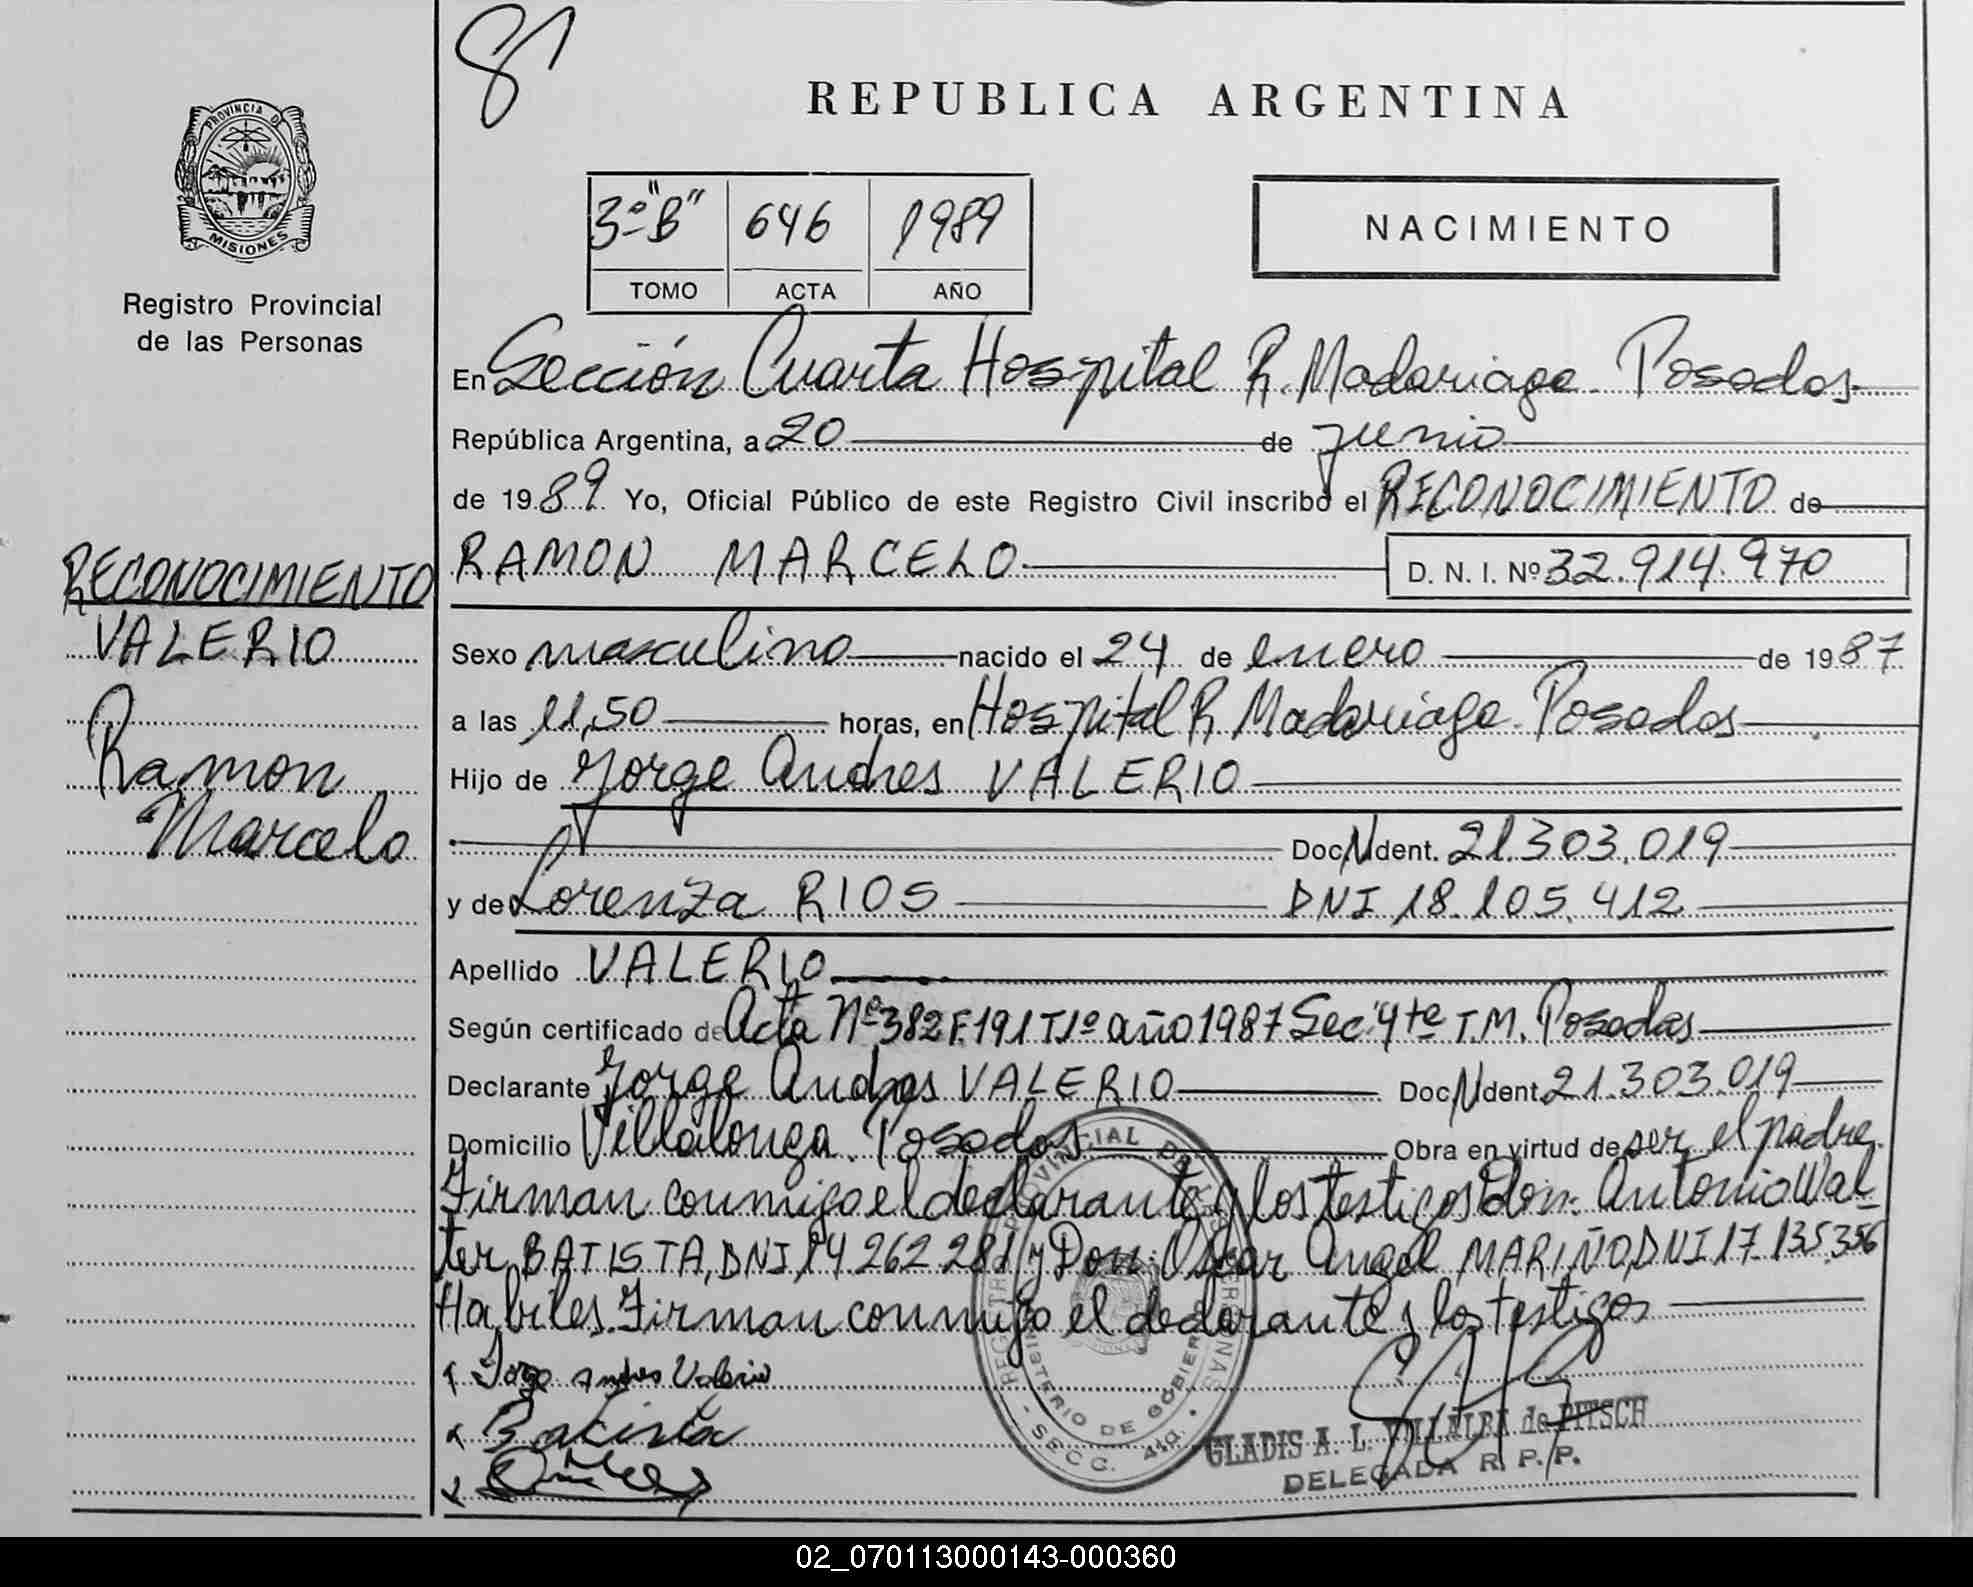 8
REPUBLICA ARGENTINA
PROVINCIA DE
MISIONES
Registro Provincial
de las Personas
3º "B" 646 1989
TOMO ACTA AÑO
NACIMIENTO
En Sección Cuarta Hospital R. Madariaga. Posadas
República Argentina, a 20 de junio
de 1989. Yo, Oficial Público de este Registro Civil inscribo el RECONOCIMIENTO de
RAMON MARCELO D. N. I. Nº 32.914.970
RECONOCIMIENTO
VALERIO
Ramon
Marcelo
Sexo masculino nacido el 24 de enero de 1987
a las 11,50 horas, en Hospital R. Madariaga. Posadas
Hijo de Jorge Andres VALERIO
Doc. Ident. 21.303.019
y de Lorenza RIOS DNI 18.105.412
Apellido VALERIO
Según certificado de Acta Nº 382 F.191 T1º año 1987 Sec. 4ta T.M. Posadas
Declarante Jorge Andres VALERIO Doc. Ident. 21.303.019
Domicilio Villalonga. Posadas Obra en virtud de ser el padre.
Firman conmigo el declarante y los testigos Don: Antonio Wal-
ter BATISTA, DNI 14 262 281 y Don: Oscar Angel MARIÑO, DNI 17.135.356
Habiles. Firman conmigo el declarante y los testigos
Jorge Andres Valerio
Batista
REGISTRO PROVINCIAL DE LAS PERSONAS
MINISTERIO DE GOBIERNO
- SECC. 4ta. -
GLADIS A. L. VILLALBA de PITSCH
DELEGADA R. P. P.
02_070113000143-000360